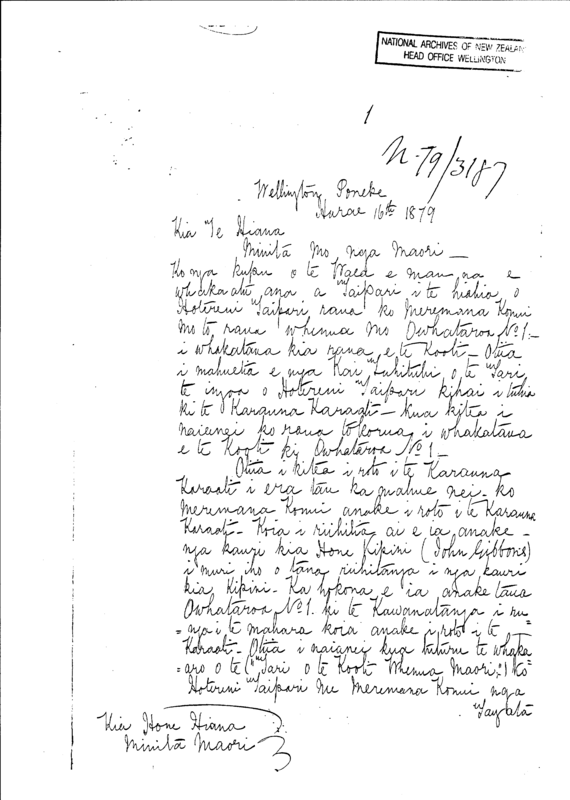 NATIONAL ARCHIVES OF NEW ZEALAN
HEAD OFFICE WELLINGTON
1
N. 79/3187
Wellington Poneke
Hurae 16th 1879
Kia Te Hiana
Minita mo nga Maori —
Ko nga kupu o te Waea e mau na e
whakaatu ana a Taipari i te hiahia o
Hotereni Taipari raua ko Meremana Konui
mo to raua whenua mo Owhataroa No 1. —
i whakataua kia raua e te Kooti — Otiia
i mahuetia e nga Kai Tuhituhi o te Tari
te ingoa o Hotereni Taipari kihai i tuhia
ki te Karauna Karaati — kua kitea i
naianei ko raua tokorua i whakataua
e te Kooti ki Owhataroa No 1 —
Otiia i kitea i roto i te Karauna
Karaati i era tau ka mahue nei — ko
Meremana Konui anake i roto i te Karauna
Karaati — Koia i riihitia ai e ia anake —
nga kauri kia Hone Kipini (John Gibbons)
i muri iho o tana riihitanga i nga kauri
kia Kipini — Ka hokona e ia anake taua
Owhataroa No 1. ki te Kawanatanga i ru
= nga i te mahara koia anake i roto i te
Karaati — Otiia i naianei kua tuturu te whaka
= aro o te ("Tari o te Kooti Whenua Maori,") ko
Hotereni Taipari me Meremana Konui nga
Tangata
Kia Hone Hiana
Minita Maori